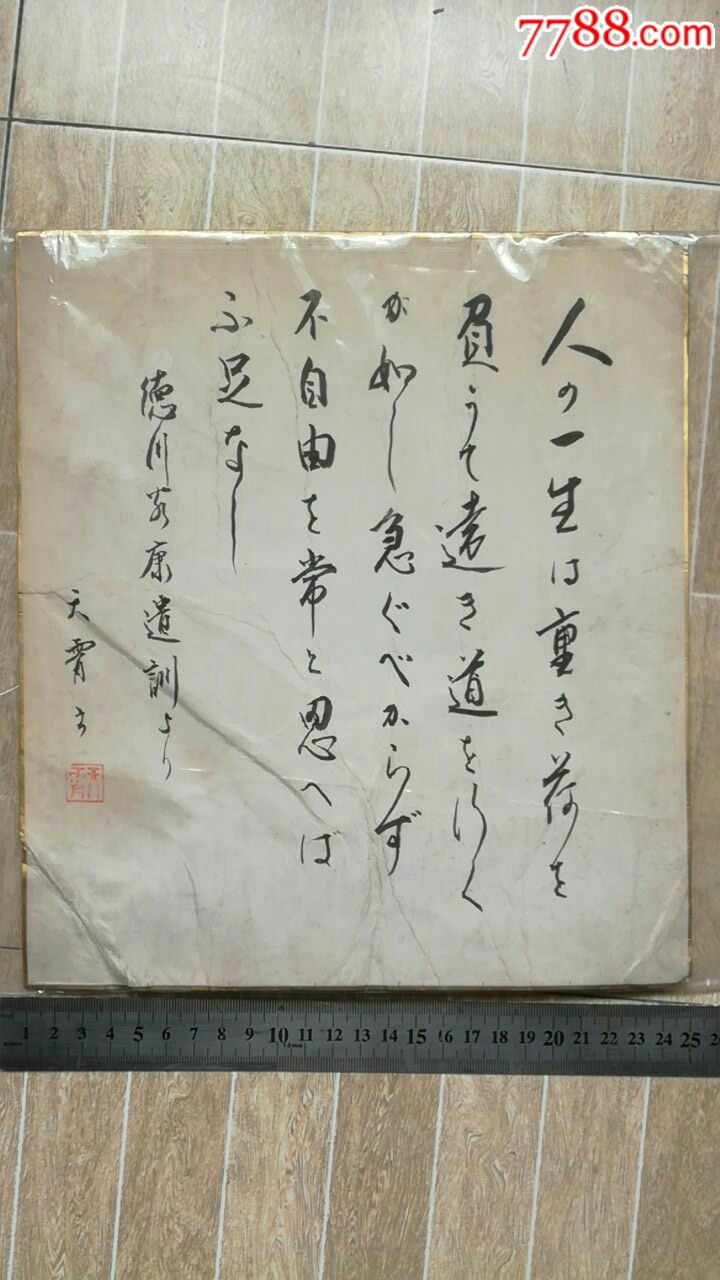 7788.com
人の一生は重き荷を
負うて遠き道を行く
が如し急ぐべからず
不自由を常と思へば
不足なし
徳川家康遺訓より
天霄書
天霄
1 2 3 4 5 6 7 8 9 10 11 12 13 14 15 16 17 18 19 20 21 22 23 24 25